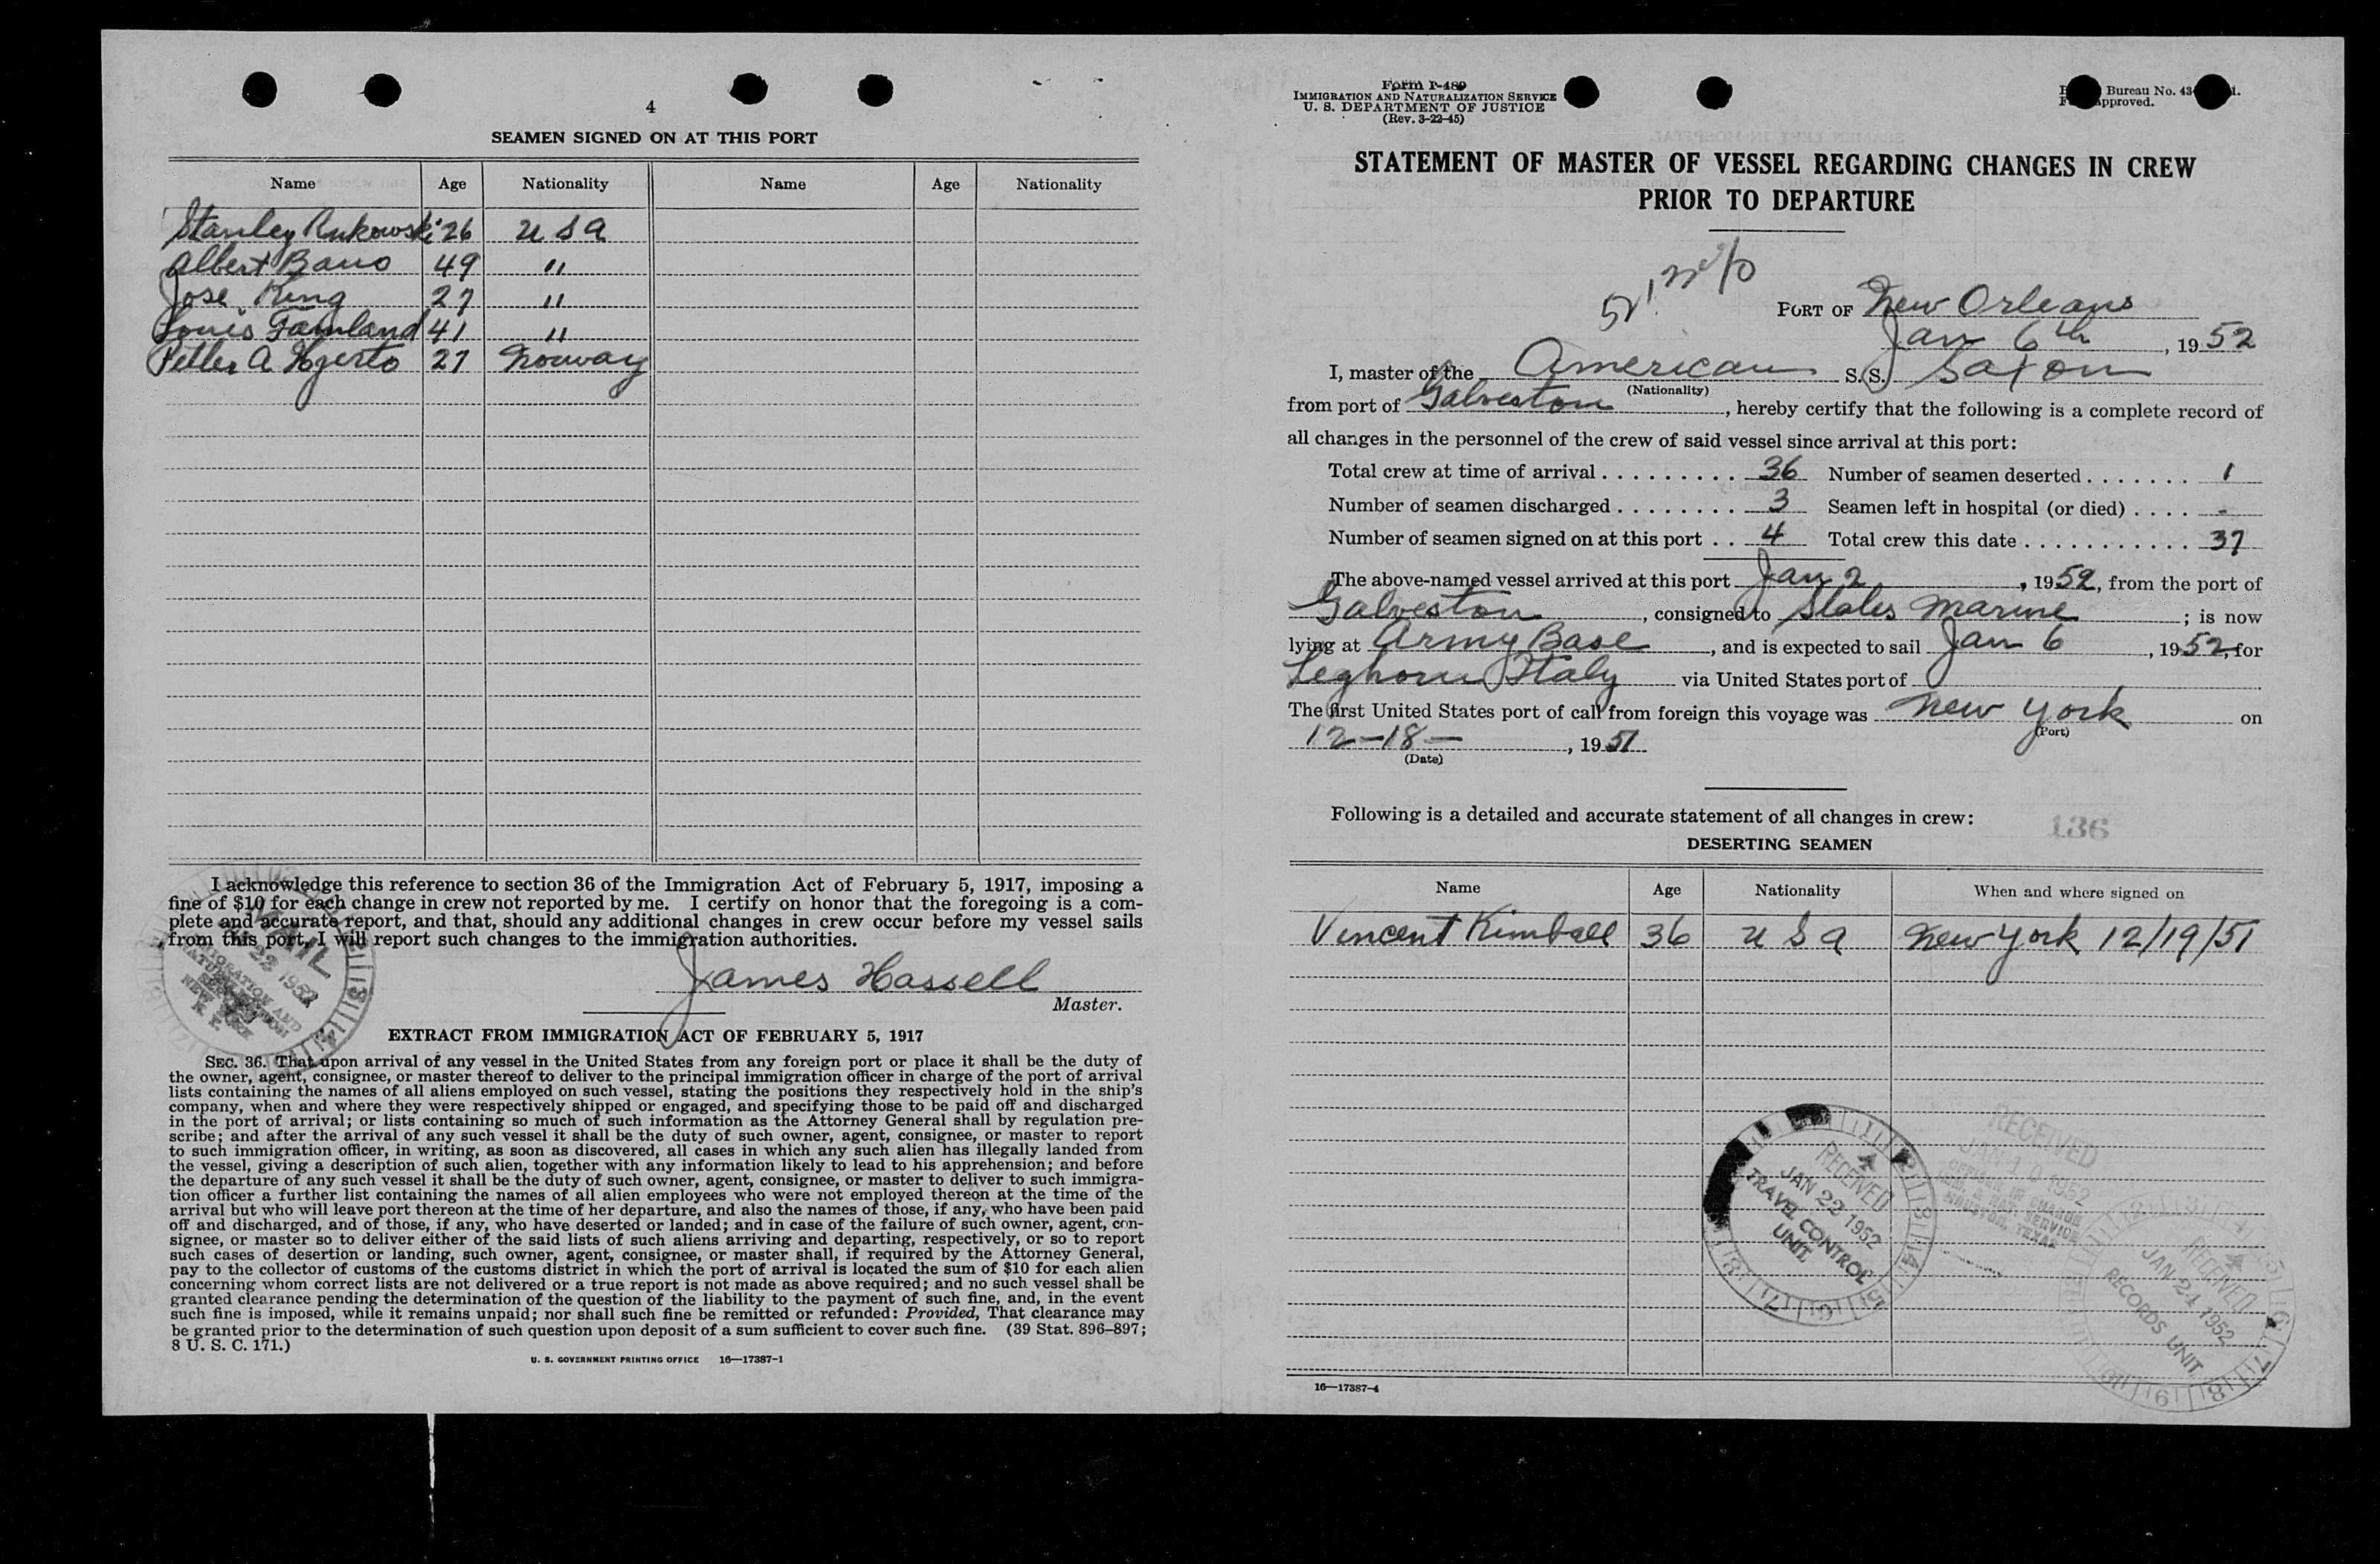 4
SEAMEN SIGNED ON AT THIS PORT
Name Age Nationality Name Age Nationality
Stanley Rukowski 26 U S A
Albert Bano 49 "
Jose King 27 "
Louis Famland 41 "
Petter A Hjerto 27 Norway
I acknowledge this reference to section 36 of the Immigration Act of February 5, 1917, imposing a
fine of $10 for each change in crew not reported by me. I certify on honor that the foregoing is a com-
plete and accurate report, and that, should any additional changes in crew occur before my vessel sails
from this port, I will report such changes to the immigration authorities.
James Hassell
Master.
MAIL
22 1952
IMMIGRATION AND
NATURALIZATION
SERVICE
NEW YORK
N. Y.
EXTRACT FROM IMMIGRATION ACT OF FEBRUARY 5, 1917
SEC. 36. That upon arrival of any vessel in the United States from any foreign port or place it shall be the duty of
the owner, agent, consignee, or master thereof to deliver to the principal immigration officer in charge of the port of arrival
lists containing the names of all aliens employed on such vessel, stating the positions they respectively hold in the ship's
company, when and where they were respectively shipped or engaged, and specifying those to be paid off and discharged
in the port of arrival; or lists containing so much of such information as the Attorney General shall by regulation pre-
scribe; and after the arrival of any such vessel it shall be the duty of such owner, agent, consignee, or master to report
to such immigration officer, in writing, as soon as discovered, all cases in which any such alien has illegally landed from
the vessel, giving a description of such alien, together with any information likely to lead to his apprehension; and before
the departure of any such vessel it shall be the duty of such owner, agent, consignee, or master to deliver to such immigra-
tion officer a further list containing the names of all alien employees who were not employed thereon at the time of the
arrival but who will leave port thereon at the time of her departure, and also the names of those, if any, who have been paid
off and discharged, and of those, if any, who have deserted or landed; and in case of the failure of such owner, agent, con-
signee, or master so to deliver either of the said lists of such aliens arriving and departing, respectively, or so to report
such cases of desertion or landing, such owner, agent, consignee, or master shall, if required by the Attorney General,
pay to the collector of customs of the customs district in which the port of arrival is located the sum of $10 for each alien
concerning whom correct lists are not delivered or a true report is not made as above required; and no such vessel shall be
granted clearance pending the determination of the question of the liability to the payment of such fine, and, in the event
such fine is imposed, while it remains unpaid; nor shall such fine be remitted or refunded: Provided, That clearance may
be granted prior to the determination of such question upon deposit of a sum sufficient to cover such fine. (39 Stat. 896–897;
8 U. S. C. 171.)
U. S. GOVERNMENT PRINTING OFFICE 16—17387-1
Form I-489
IMMIGRATION AND NATURALIZATION SERVICE
U. S. DEPARTMENT OF JUSTICE
(Rev. 3-22-45)
Bureau No. 43
approved.
STATEMENT OF MASTER OF VESSEL REGARDING CHANGES IN CREW
PRIOR TO DEPARTURE
PORT OF New Orleans
Jan 6th, 1952
I, master of the American S. S. Saxon
(Nationality)
from port of Galveston, hereby certify that the following is a complete record of
all changes in the personnel of the crew of said vessel since arrival at this port:
Total crew at time of arrival . . . . . . . . . 36 Number of seamen deserted . . . . . . . 1
Number of seamen discharged . . . . . . . . 3 Seamen left in hospital (or died) . . . . -
Number of seamen signed on at this port . . 4 Total crew this date . . . . . . . . . . . . 37
The above-named vessel arrived at this port Jan 2, 1952, from the port of
Galveston, consigned to States Marine; is now
lying at Army Base, and is expected to sail Jan 6, 1952, for
Leghorn Italy via United States port of
The first United States port of call from foreign this voyage was New York on
(Port)
12-18-, 1951
(Date)
Following is a detailed and accurate statement of all changes in crew:
136
DESERTING SEAMEN
Name Age Nationality When and where signed on
Vincent Kimball 36 U S A New York 12/19/51
RECEIVED
JAN 22 1952
TRAVEL CONTROL
UNIT
RECEIVED
JAN 10 1952
OFFICER IN CHARGE
IMM. & NAT. SERVICE
TEXAS
RECEIVED
JAN 24 1952
RECORDS UNIT
16—17387-4